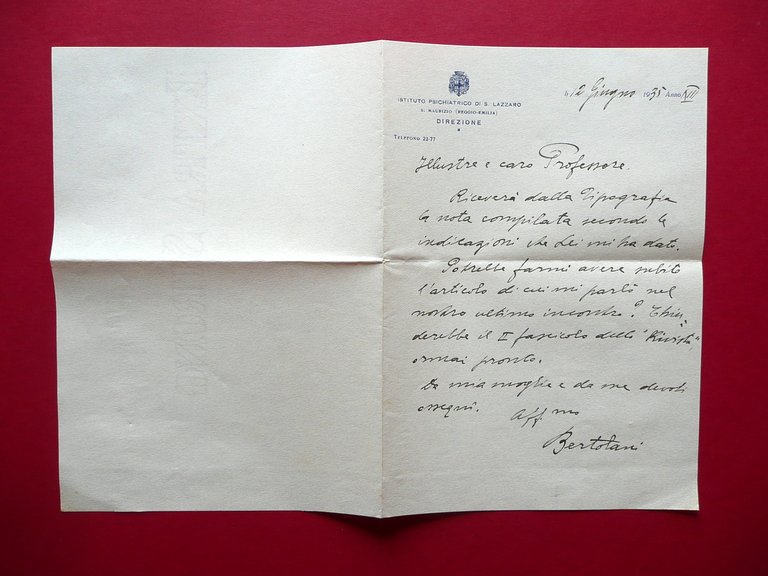 ISTITUTO PSICHIATRICO DI S. LAZZARO
S. MAURIZIO (REGGIO-EMILIA)
DIREZIONE
TELEFONO 22-77
li 12 Giugno 1935 Anno XIII
Illustre e caro Professore.
Riceverà dalla Tipografia
la nota compilata secondo le
indicazioni che Lei mi ha dato.
Potrebbe farmi avere subito
l'articolo di cui mi parlò nel
nostro ultimo incontro? Chiu
derebbe il II fascicolo della "Rivista",
ormai pronto.
Da mia moglie e da me devoti
ossequi.
Aff mo
Bertolani